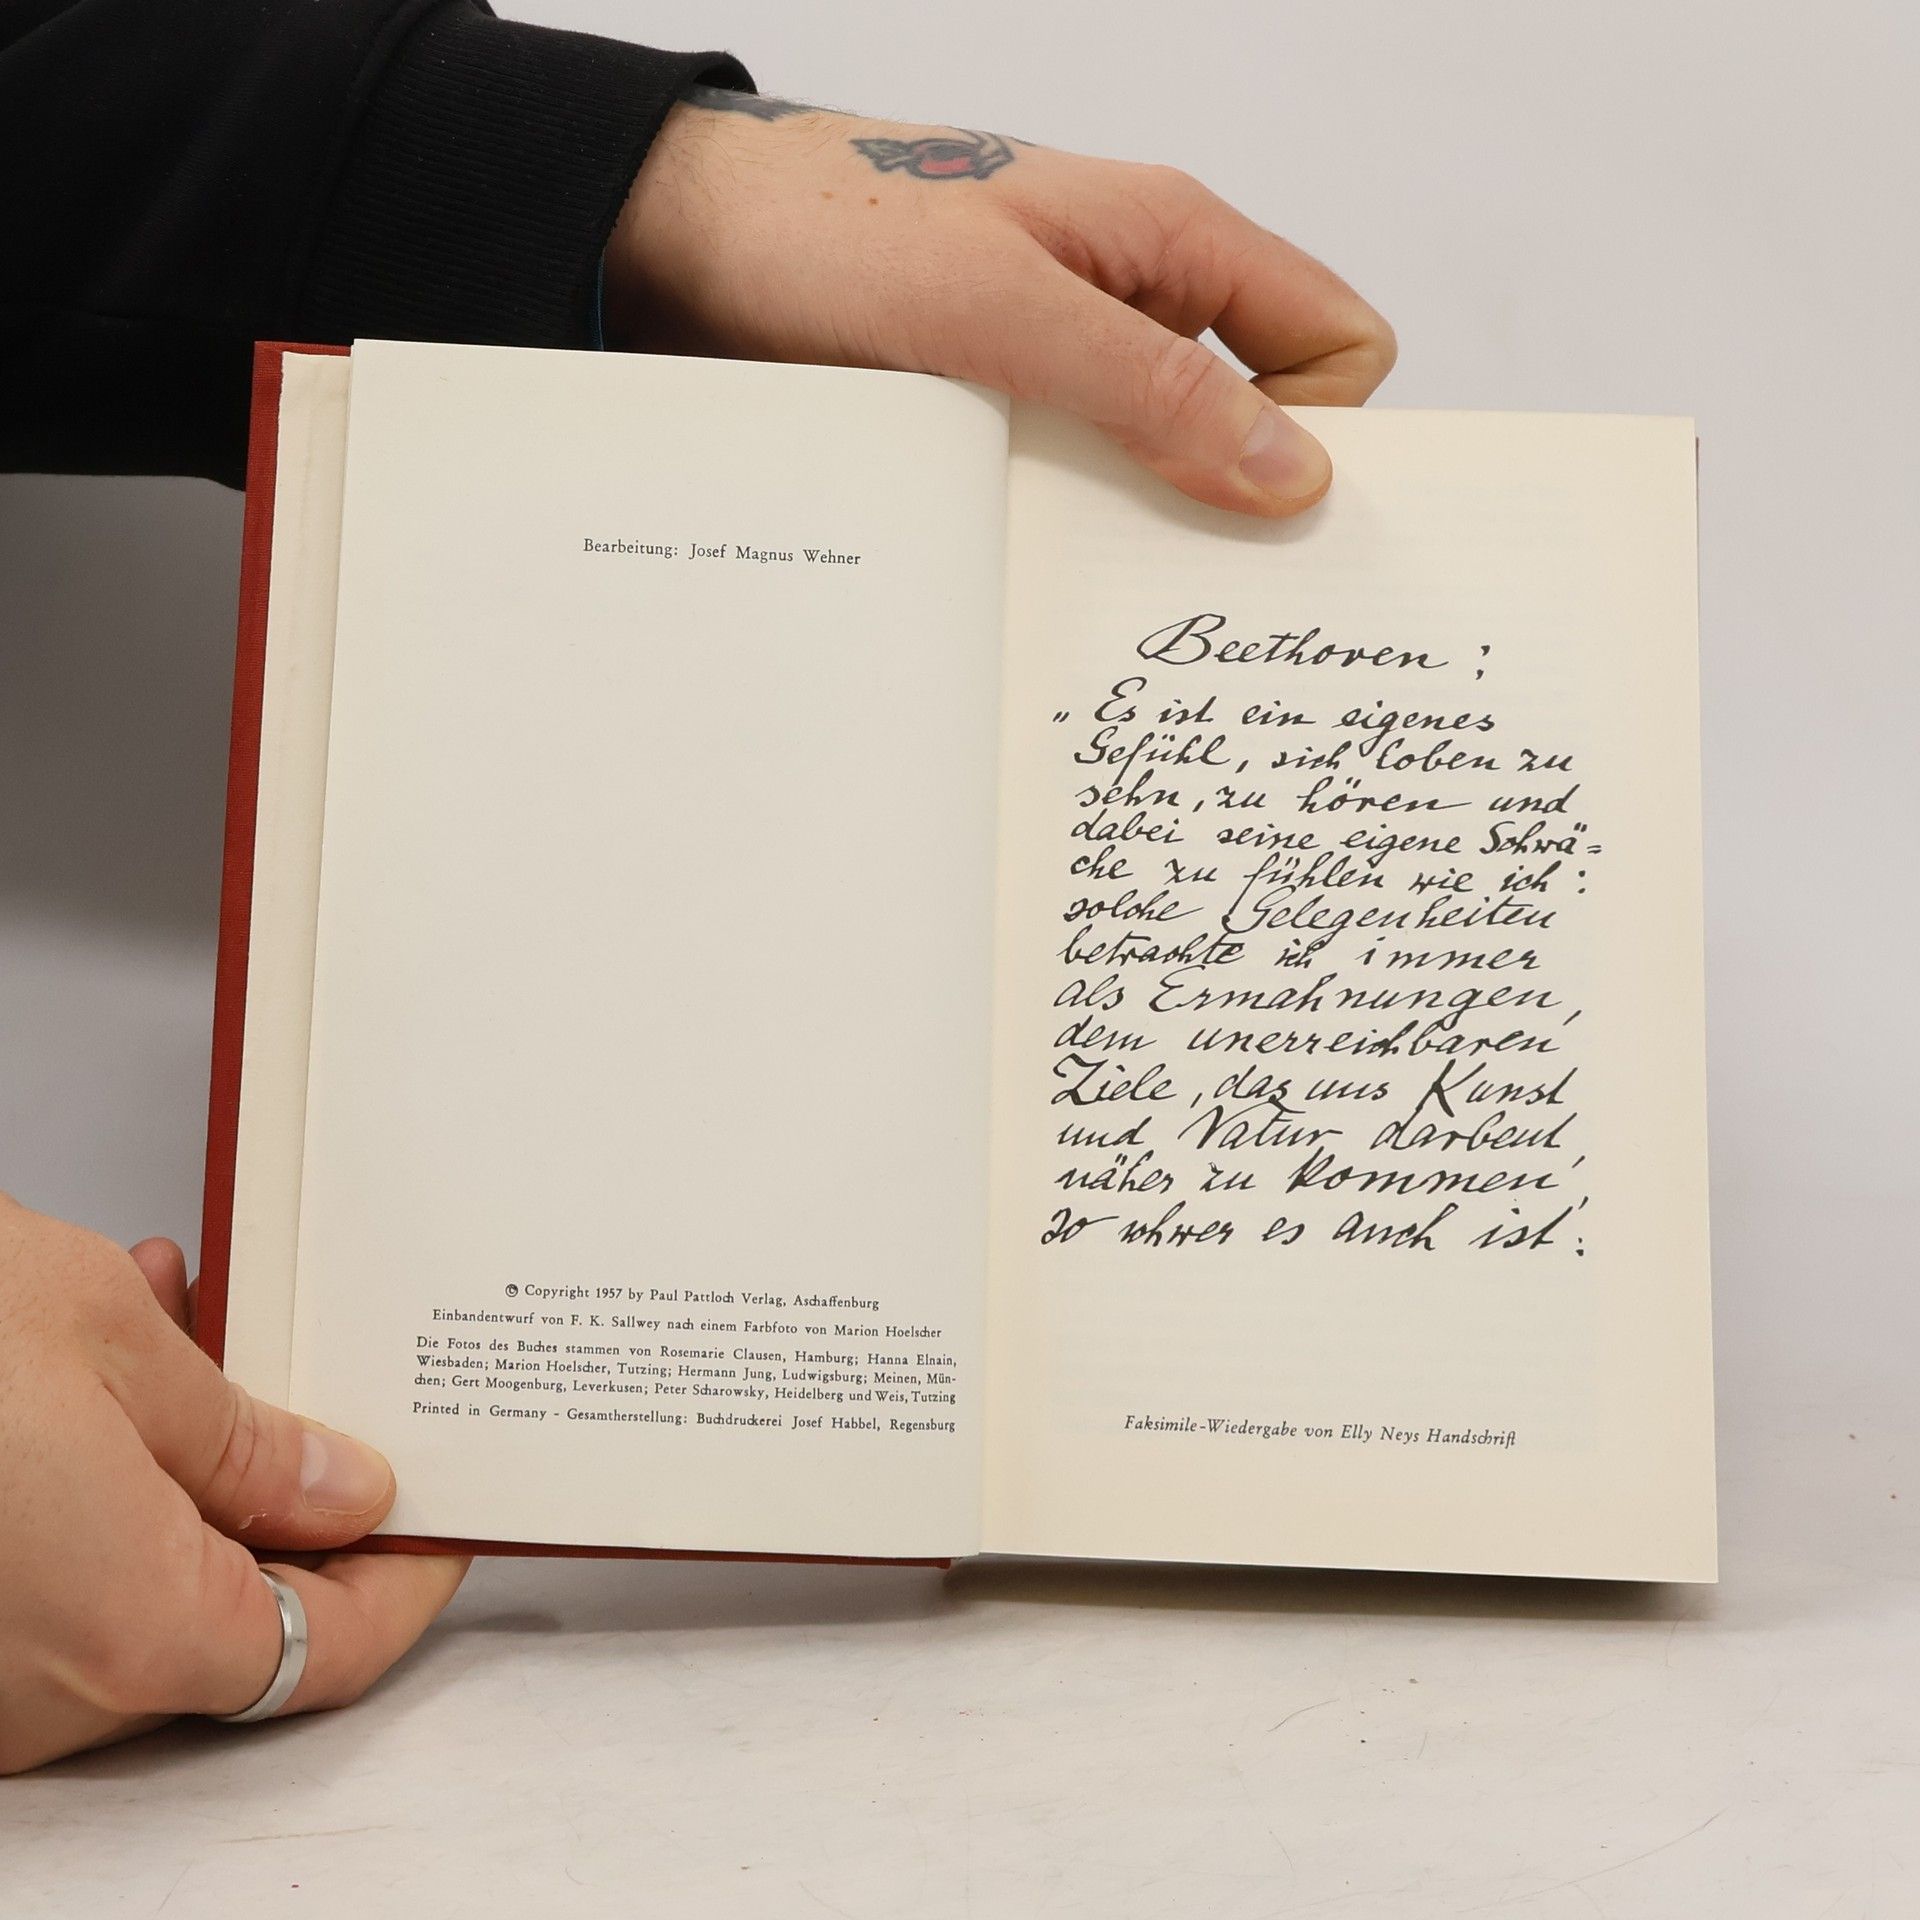 Bearbeitung: Josef Magnus Wehner
© Copyright 1957 by Paul Pattloch Verlag, Aschaffenburg
Einbandentwurf von F. K. Sallwey nach einem Farbfoto von Marion Hoelscher
Die Fotos des Buches stammen von Rosemarie Clausen, Hamburg; Hanna Elnain,
Wiesbaden; Marion Hoelscher, Tutzing; Hermann Jung, Ludwigsburg; Meinen, Mün-
chen; Gert Moogenburg, Leverkusen; Peter Scharowsky, Heidelberg und Weis, Tutzing
Printed in Germany - Gesamtherstellung: Buchdruckerei Josef Habbel, Regensburg
Beethoven :
„ Es ist ein eigenes
Gefühl, sich loben zu
sehn, zu hören und
dabei seine eigene Schwä=
che zu fühlen wie ich :
solche Gelegenheiten
betrachte ich immer
als Ermahnungen,
dem unerreichbaren
Ziele, das uns Kunst
und Natur darbeut,
näher zu kommen,
so schwer es auch ist :
Faksimile-Wiedergabe von Elly Neys Handschrift